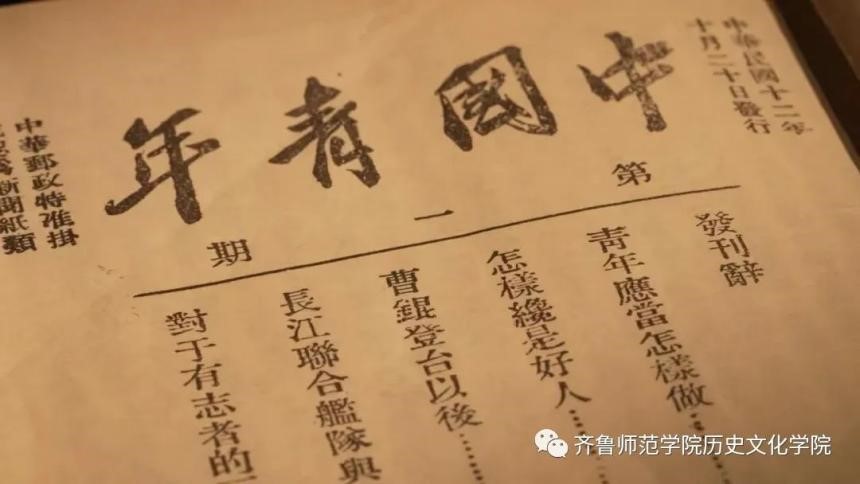 中華民國十二年
十月二十日發行
中國青年
第一期
中華郵政特准掛
新聞紙類
發刊辭
青年應當怎樣做……
怎樣纔是好人……
曹錕登台以後……
長江聯合艦隊與
對于有志者的
齐鲁师范学院历史文化学院